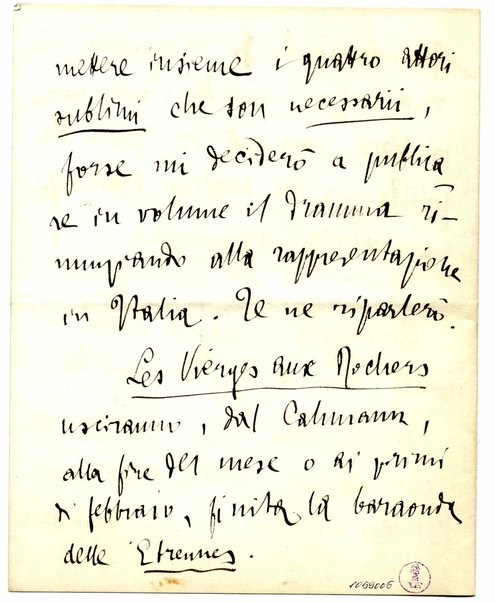 mettere insieme i quattro attori
sublimi che son necessarii,
forse mi deciderò a publica
re in volume il dramma ri-
nunziando alla rappresentazione
in Italia. Te ne riparlerò.
Les Vierges aux Rochers
usciranno, dal Calmann,
alla fine del mese o ai primi
di febbraio, finita la baraonda
delle Etrennes.